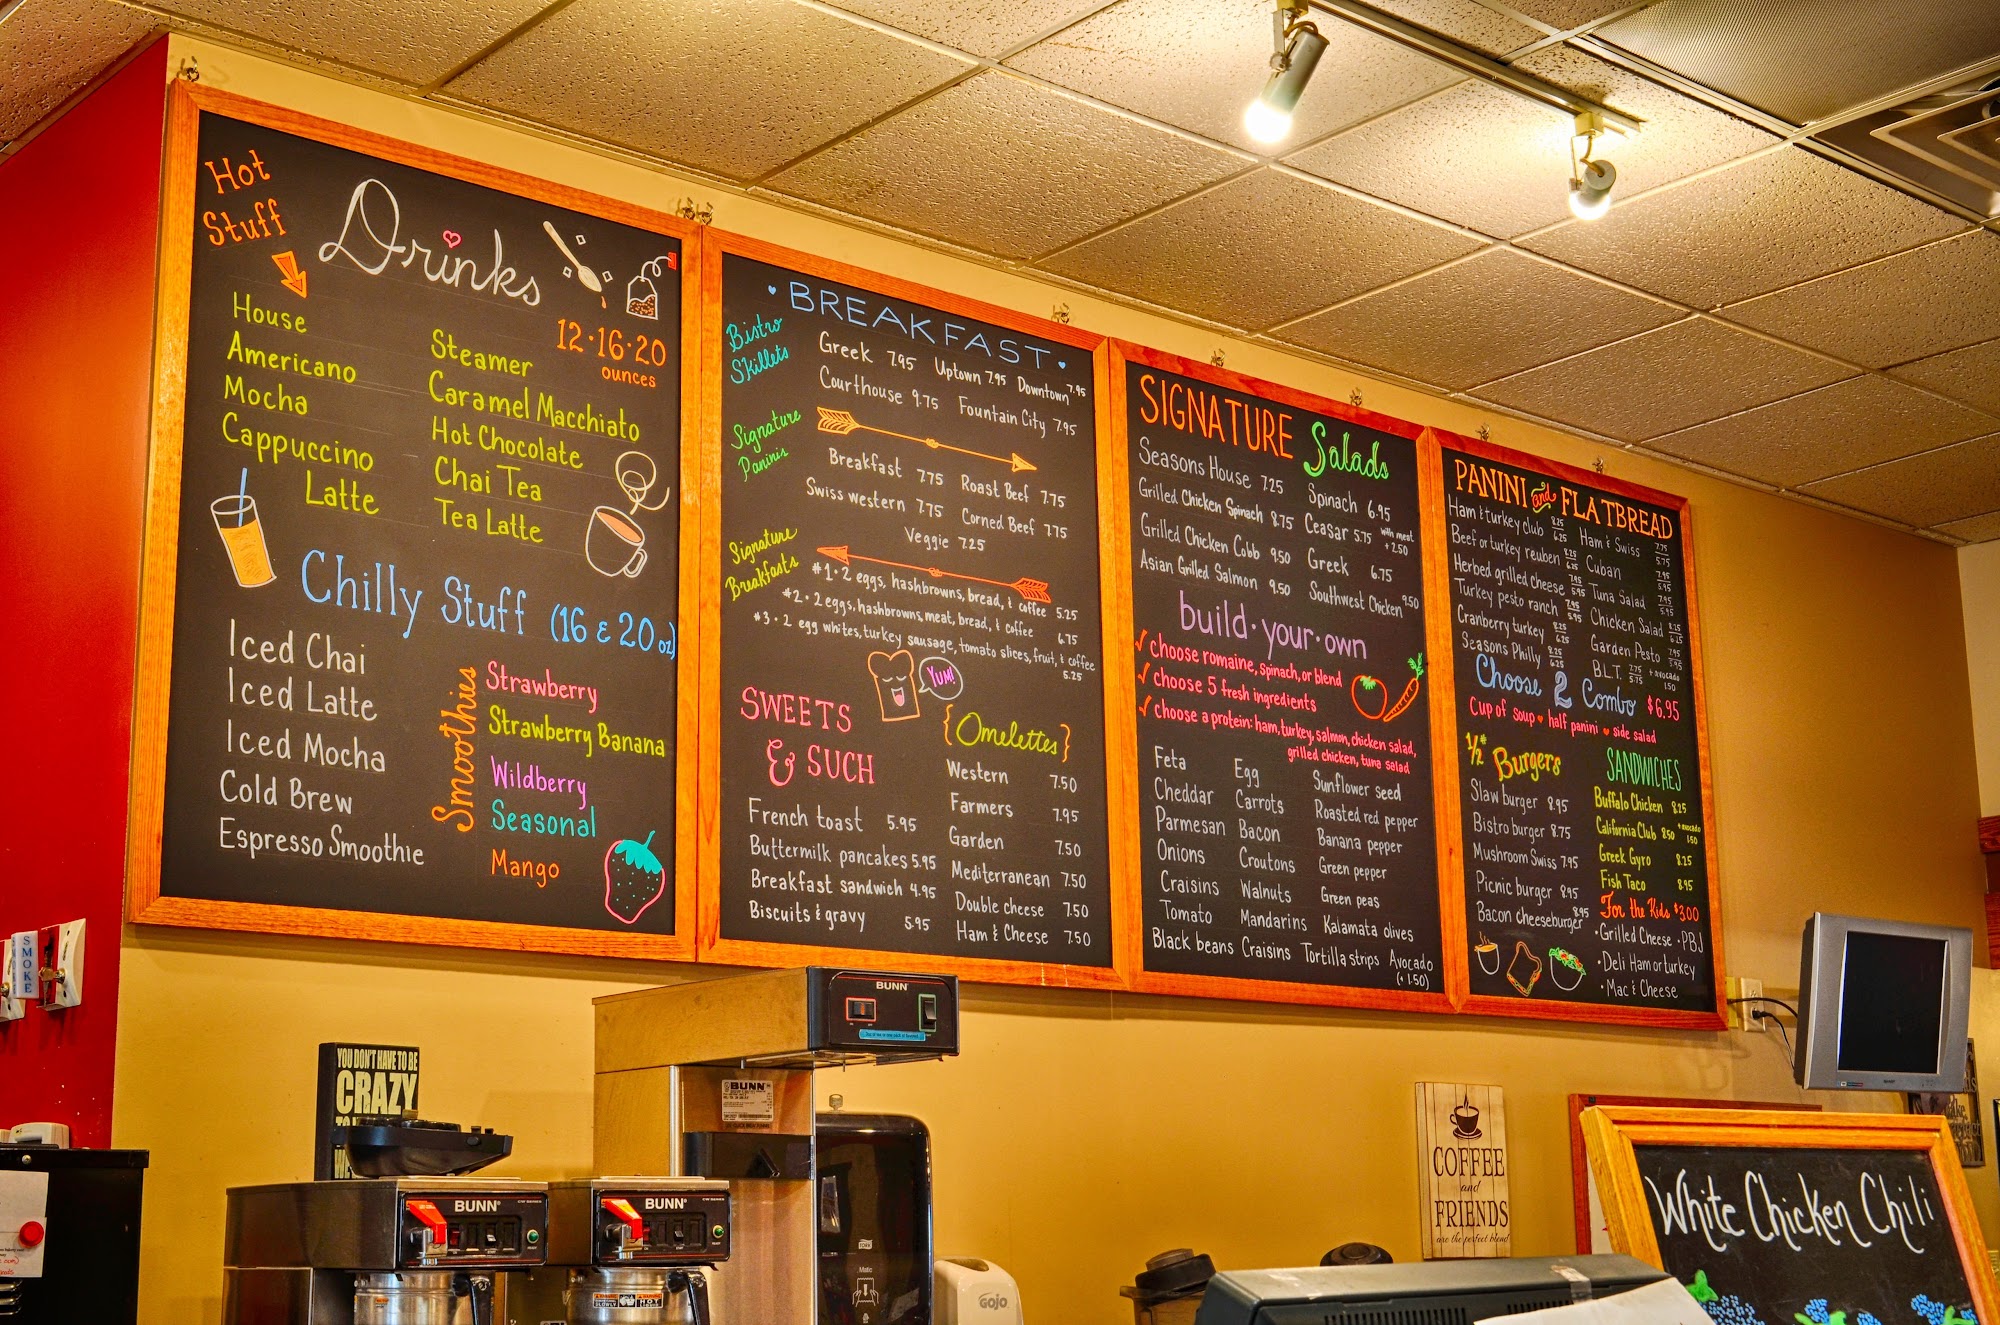 Hot
Stuff
Drinks
12·16·20
ounces
House
Americano
Mocha
Cappuccino
Latte
Steamer
Caramel Macchiato
Hot Chocolate
Chai Tea
Tea Latte
Chilly Stuff (16 & 20 oz)
Iced Chai
Iced Latte
Iced Mocha
Cold Brew
Espresso Smoothie
Smoothies
Strawberry
Strawberry Banana
Wildberry
Seasonal
Mango
BREAKFAST
Bistro
Skillets
Greek 7.95 Uptown 7.95 Downtown 7.95
Courthouse 9.75 Fountain City 7.95
Signature
Paninis
Breakfast 7.75 Roast Beef 7.75
Swiss western 7.75 Corned Beef 7.75
Veggie 7.25
Signature
Breakfasts
#1·2 eggs, hashbrowns, bread, & coffee 5.25
#2·2 eggs, hashbrowns, meat, bread, & coffee 6.75
#3·2 egg whites, turkey sausage, tomato slices, fruit, & coffee
5.25
YUM!
SWEETS
& SUCH
French toast 5.95
Buttermilk pancakes 5.95
Breakfast sandwich 4.95
Biscuits & gravy 5.95
{Omelettes}
Western 7.50
Farmers 7.95
Garden 7.50
Mediterranean 7.50
Double cheese 7.50
Ham & Cheese 7.50
SIGNATURE Salads
Seasons House 7.25
Grilled Chicken Spinach 8.75
Grilled Chicken Cobb 9.50
Asian Grilled Salmon 9.50
Spinach 6.95
Ceasar 5.75 with meat +2.50
Greek 6.75
Southwest Chicken 9.50
build·your·own
choose romaine, spinach, or blend
choose 5 fresh ingredients
choose a protein: ham, turkey, salmon, chicken salad,
grilled chicken, tuna salad
Feta
Cheddar
Parmesan
Onions
Craisins
Tomato
Black beans
Egg
Carrots
Bacon
Croutons
Walnuts
Mandarins
Craisins
Sunflower seed
Roasted red pepper
Banana pepper
Green pepper
Green peas
Kalamata olives
Tortilla strips
Avocado
(+1.50)
PANINI and FLATBREAD
Ham & turkey club 8.25 6.25
Beef or turkey reuben 8.25 6.25
Herbed grilled cheese 7.95 5.95
Turkey pesto ranch 7.95 5.95
Cranberry turkey 8.25 6.25
Seasons Philly 8.25 6.25
Ham & Swiss 7.75 5.75
Cuban 7.95 5.95
Tuna Salad 7.95 5.95
Chicken Salad 8.25 6.25
Garden Pesto 7.95 5.95
B.L.T. 7.75 5.75 + avocado 1.50
Choose 2 Combo $6.95
Cup of soup half panini side salad
1/2# Burgers
Slaw burger 8.95
Bistro burger 8.75
Mushroom Swiss 7.95
Picnic burger 8.95
Bacon cheeseburger 8.95
SANDWICHES
Buffalo Chicken 8.25
California Club 8.50 + avocado 1.50
Greek Gyro 8.25
Fish Taco 8.95
For the Kids $3.00
·Grilled Cheese ·PBJ
·Deli Ham or turkey
·Mac & Cheese
SMOKE
YOU DON'T HAVE TO BE
CRAZY
BUNN
BUNN
BUNN
BUNN
GOJO
COFFEE
and
FRIENDS
are the perfect blend
White Chicken Chili